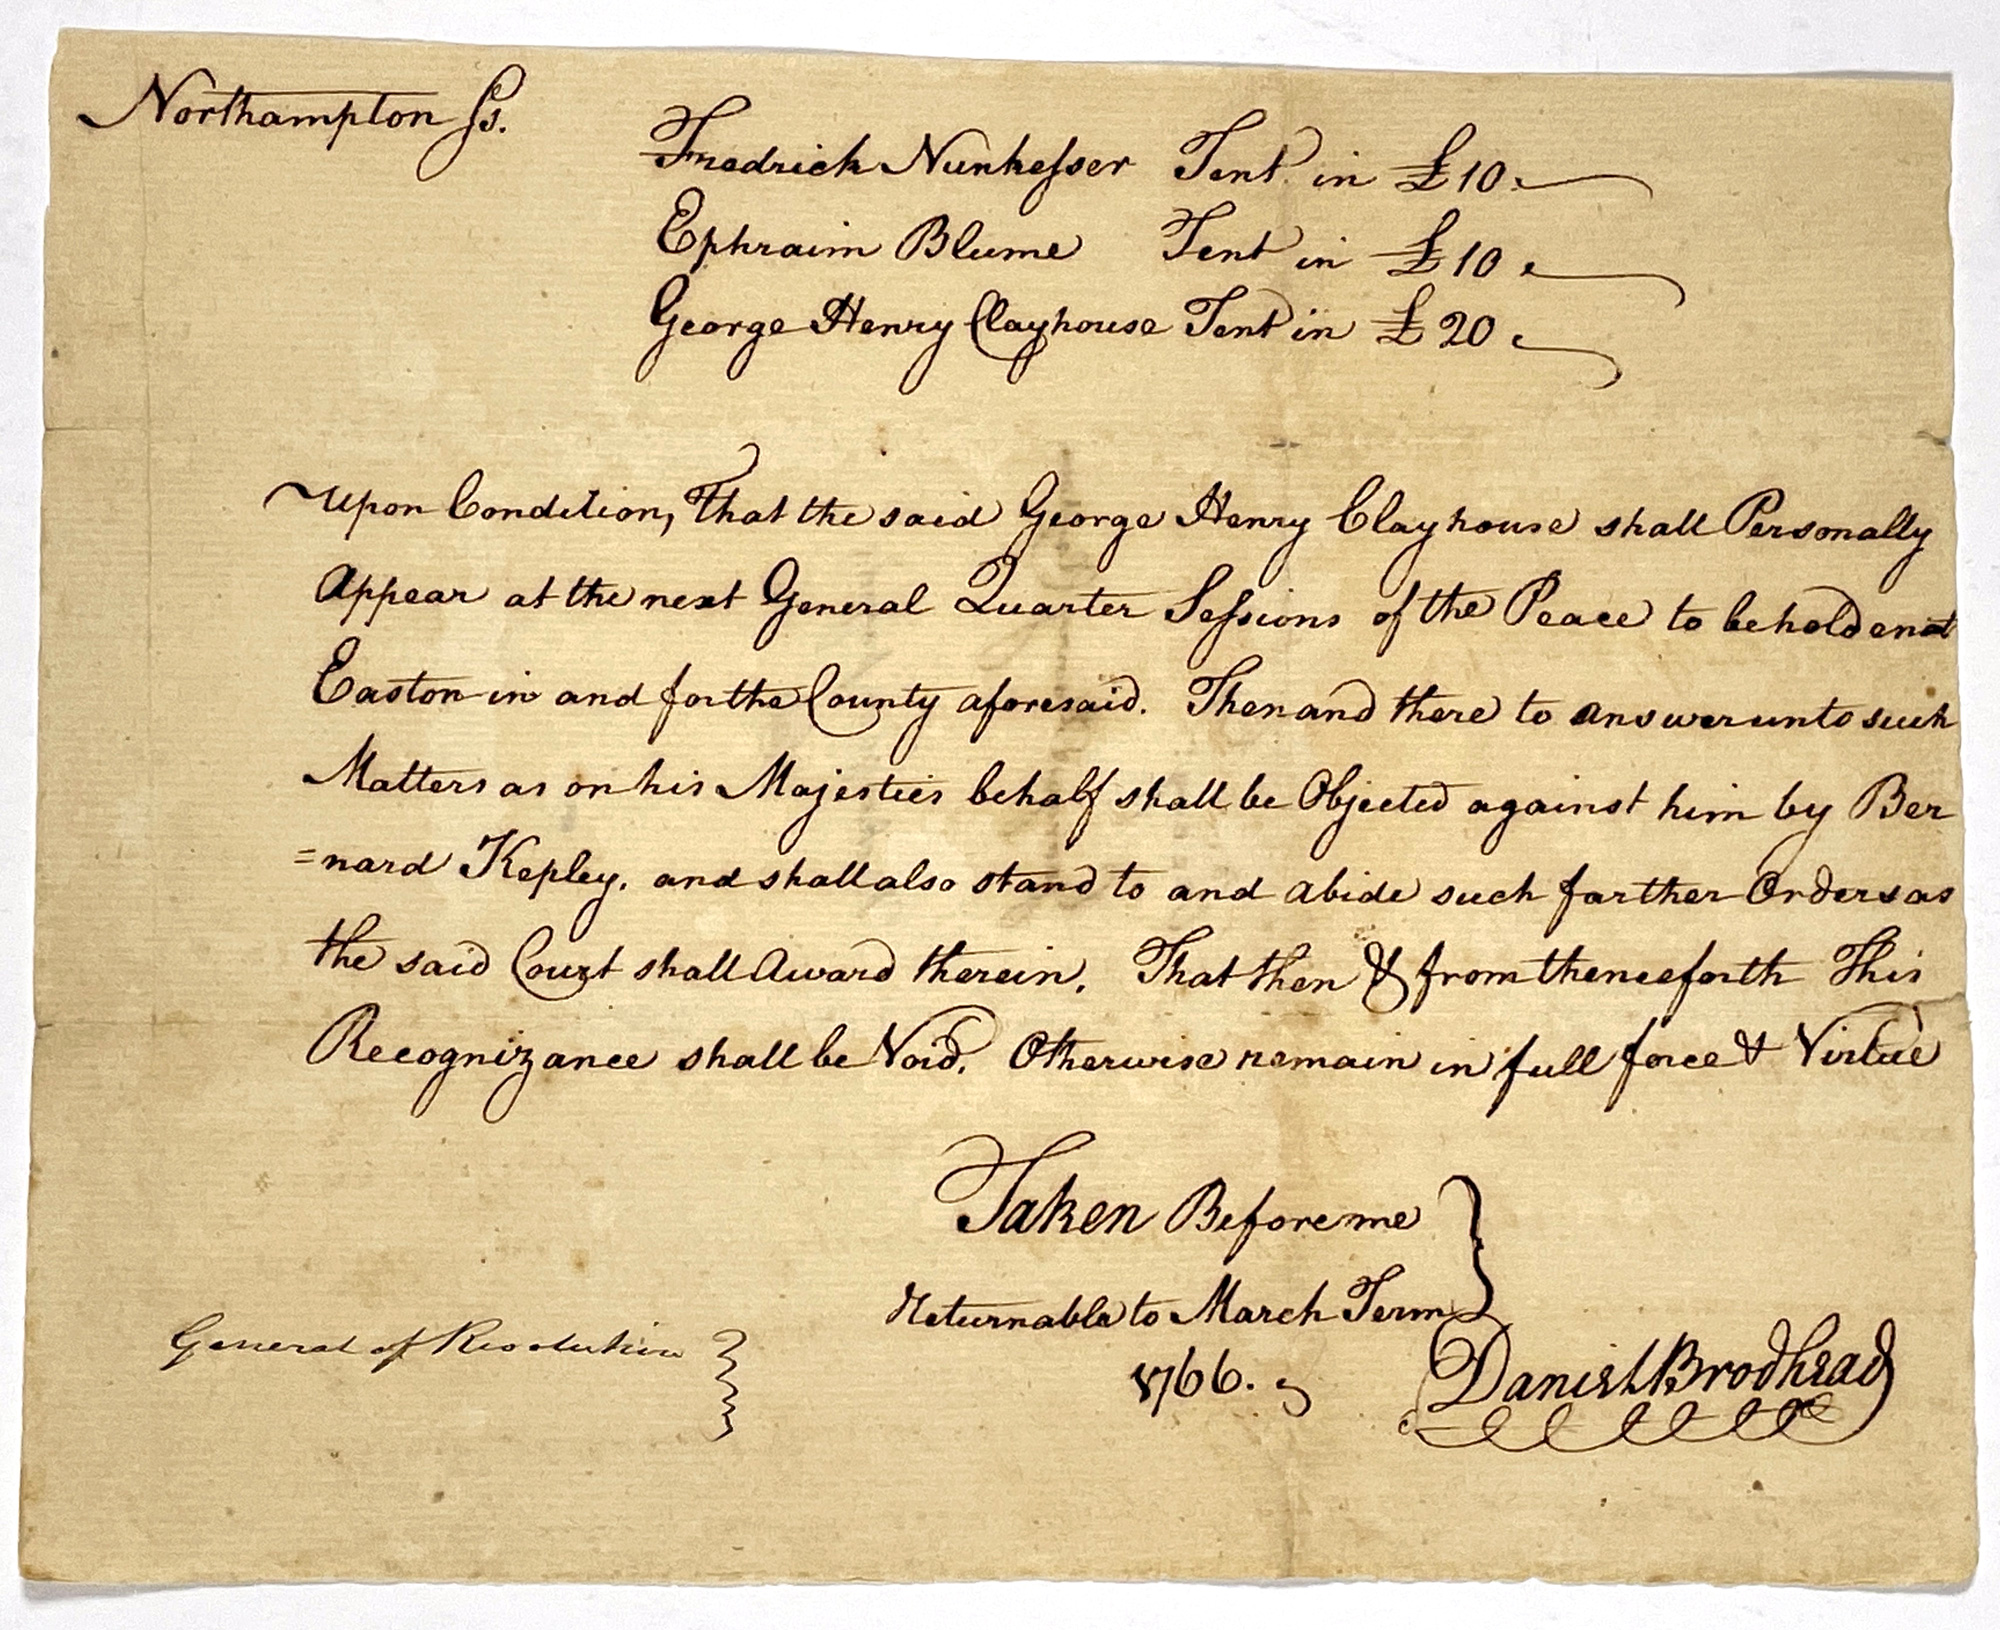 Northampton Ss.
Fredrick Nunkesser Tent in £10.
Ephraim Blume Tent in £10.
George Henry Clayhouse Tent in £20.
Upon Condition, That the said George Henry Clayhouse shall Personally
Appear at the next General Quarter Sessions of the Peace to be holden at
Easton in and for the County aforesaid. Then and there to answer unto such
Matters as on his Majesties behalf shall be Objected against him by Ber
=nard Kepley. and shall also stand to and abide such farther Orders as
the said Court shall Award therein. That then & from thenceforth This
Recognizance shall be Void. Otherwise remain in full force & Virtue
Taken Before me
Returnable to March Term
1766.
Daniel Brodhead
General of Revolution